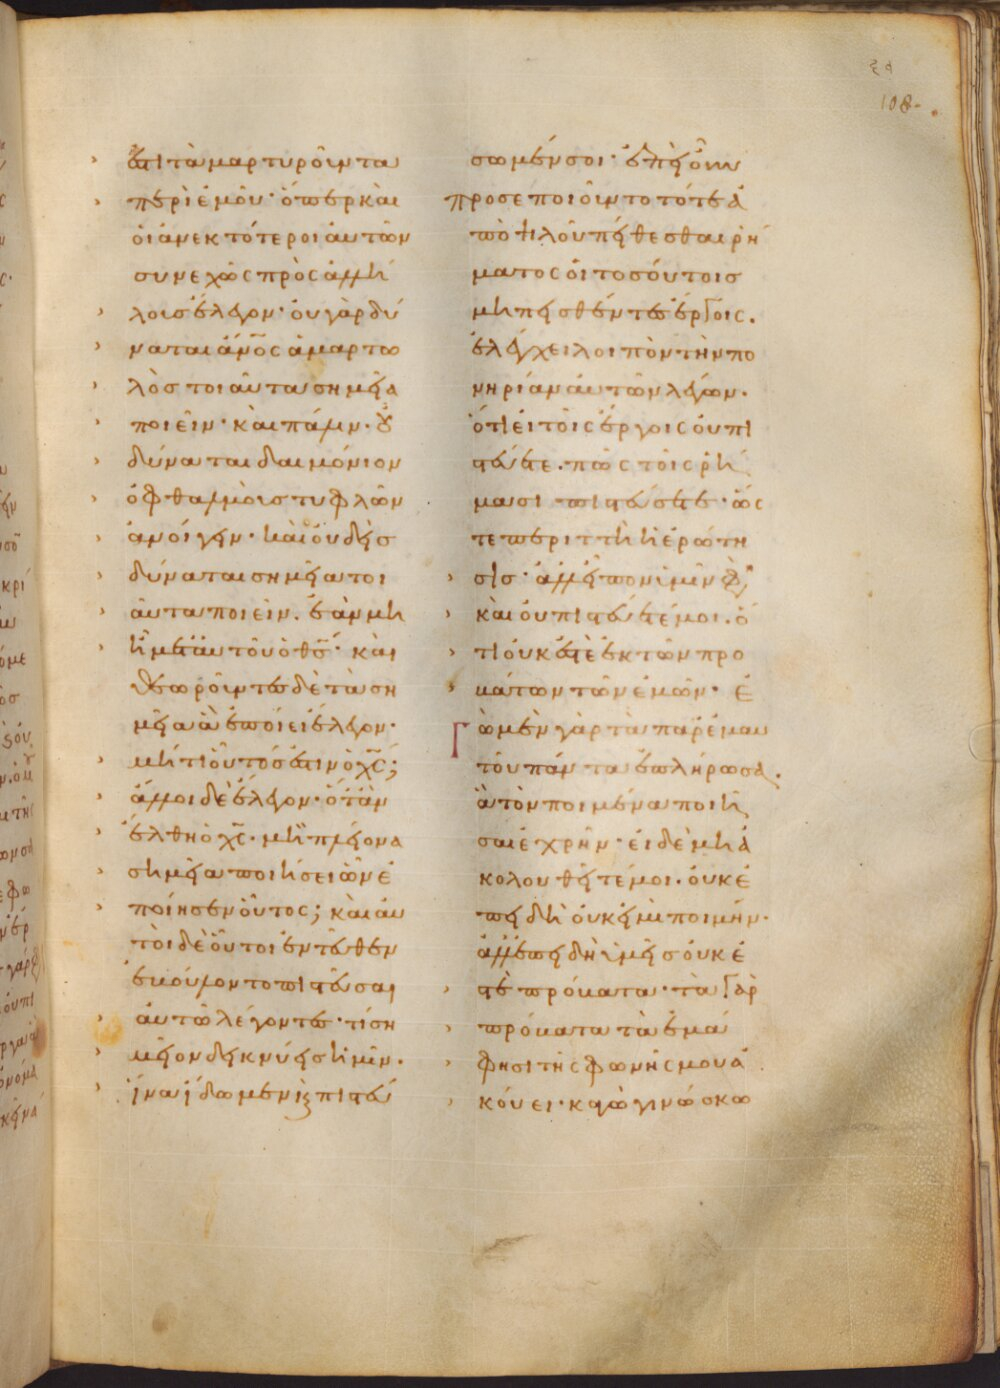 108
ἐστι τὰ μαρτυροῦντα
περὶ ἐμοῦ· ὅπερ καὶ
οἱ ἀνεκτότεροι αὐτῶν
συνεχῶς πρὸς ἀλλή
λους ἔλεγον· οὐ γὰρ δύ
ναται ἄνος ἁμαρτω
λὸς τοιαῦτα σημεῖα
ποιεῖν· καὶ πάλιν· οὐ
δύναται δαιμόνιον
ὀφθαλμοὺς τυφλῶν
ἀνοίγειν· καὶ οὐδεὶς
δύναται σημεῖα τοι
αῦτα ποιεῖν. ἐὰν μὴ
ἦ μετ αὐτοῦ ὁ θς· καὶ
θεωροῦντες δὲ τὰ ση
μεῖα ἃ ἐποίει ἔλεγον·
μήτι οὗτος ἐστιν ὁ χς;
ἄλλοι δὲ ἔλεγον· ὅταν
ἔλθη ὁ χς· μὴ πλείονα
σημεῖα ποιήσει ὧν ἐ
ποίησεν οὗτος; καὶ αὐ
τοὶ δὲ οὗτοι ἐντεῦθεν
ἐβούλοντο πιστεῦσαι
αὐτῶ λέγοντες· τί ση
μεῖον δεικνύεις ἡμῖν·
ἵνα ἴδωμεν καὶ πιστεύ
σωμέν σοι· ἐπεὶ οὖν
προσεποιοῦντο τότε ἀ
πὸ ψιλοῦ πείθεσθαι ῥή
ματος οἱ τοσούτοις
μὴ πεισθέντες ἔργοις.
ἐλέγχει λοιπὸν τὴν πο
νηρίαν αὐτῶν λέγων.
ὅτι εἰ τοῖς ἔργοις οὐ πι
στεύετε. πῶς τοῖς ῥή
μασι πιστεύσετε· ὥς
τε περιττὴ ἡ ἐρώτη
σις· ἀλλ εἶπον ὑμῖν φησι
καὶ οὐ πιστεύετέ μοι. ὅ
τι οὐκ ἐστὲ ἐκ τῶν προ
βάτων τῶν ἐμῶν· ἐ
Γὼ μὲν γὰρ τὰ παρ ἐμαυ
τοῦ πάντα ἐπλήρωσα.
ἃ τὸν ποιμένα ποιῆ
σαι ἐχρῆν· εἰ δὲ μὴ ἀ
κολουθεῖτέ μοι. οὐκ ἐ
πειδὴ οὐκ εἰμὶ ποιμήν·
ἀλλ ἐπειδὴ ὑμεῖς οὐκ ἐ
στὲ πρόβατα· τὰ γὰρ
πρόβατα τὰ ἐμά
φησι τῆς φωνῆς μου ἀ
κούει· κἀγὼ γινώσκω